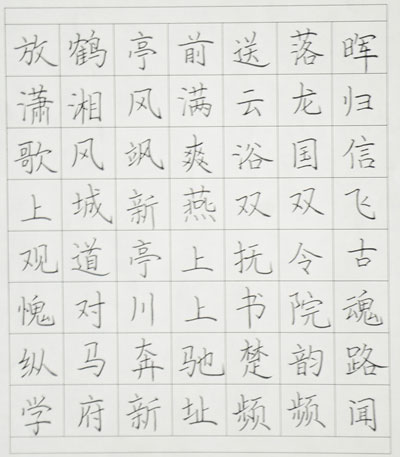 放鹤亭前送落晖
潇湘风满云龙归
歌风飒爽浴国信
上城新燕双双飞
观道亭上抚令古
愧对川上书院魂
纵马奔驰楚韵路
学府新址频频闻